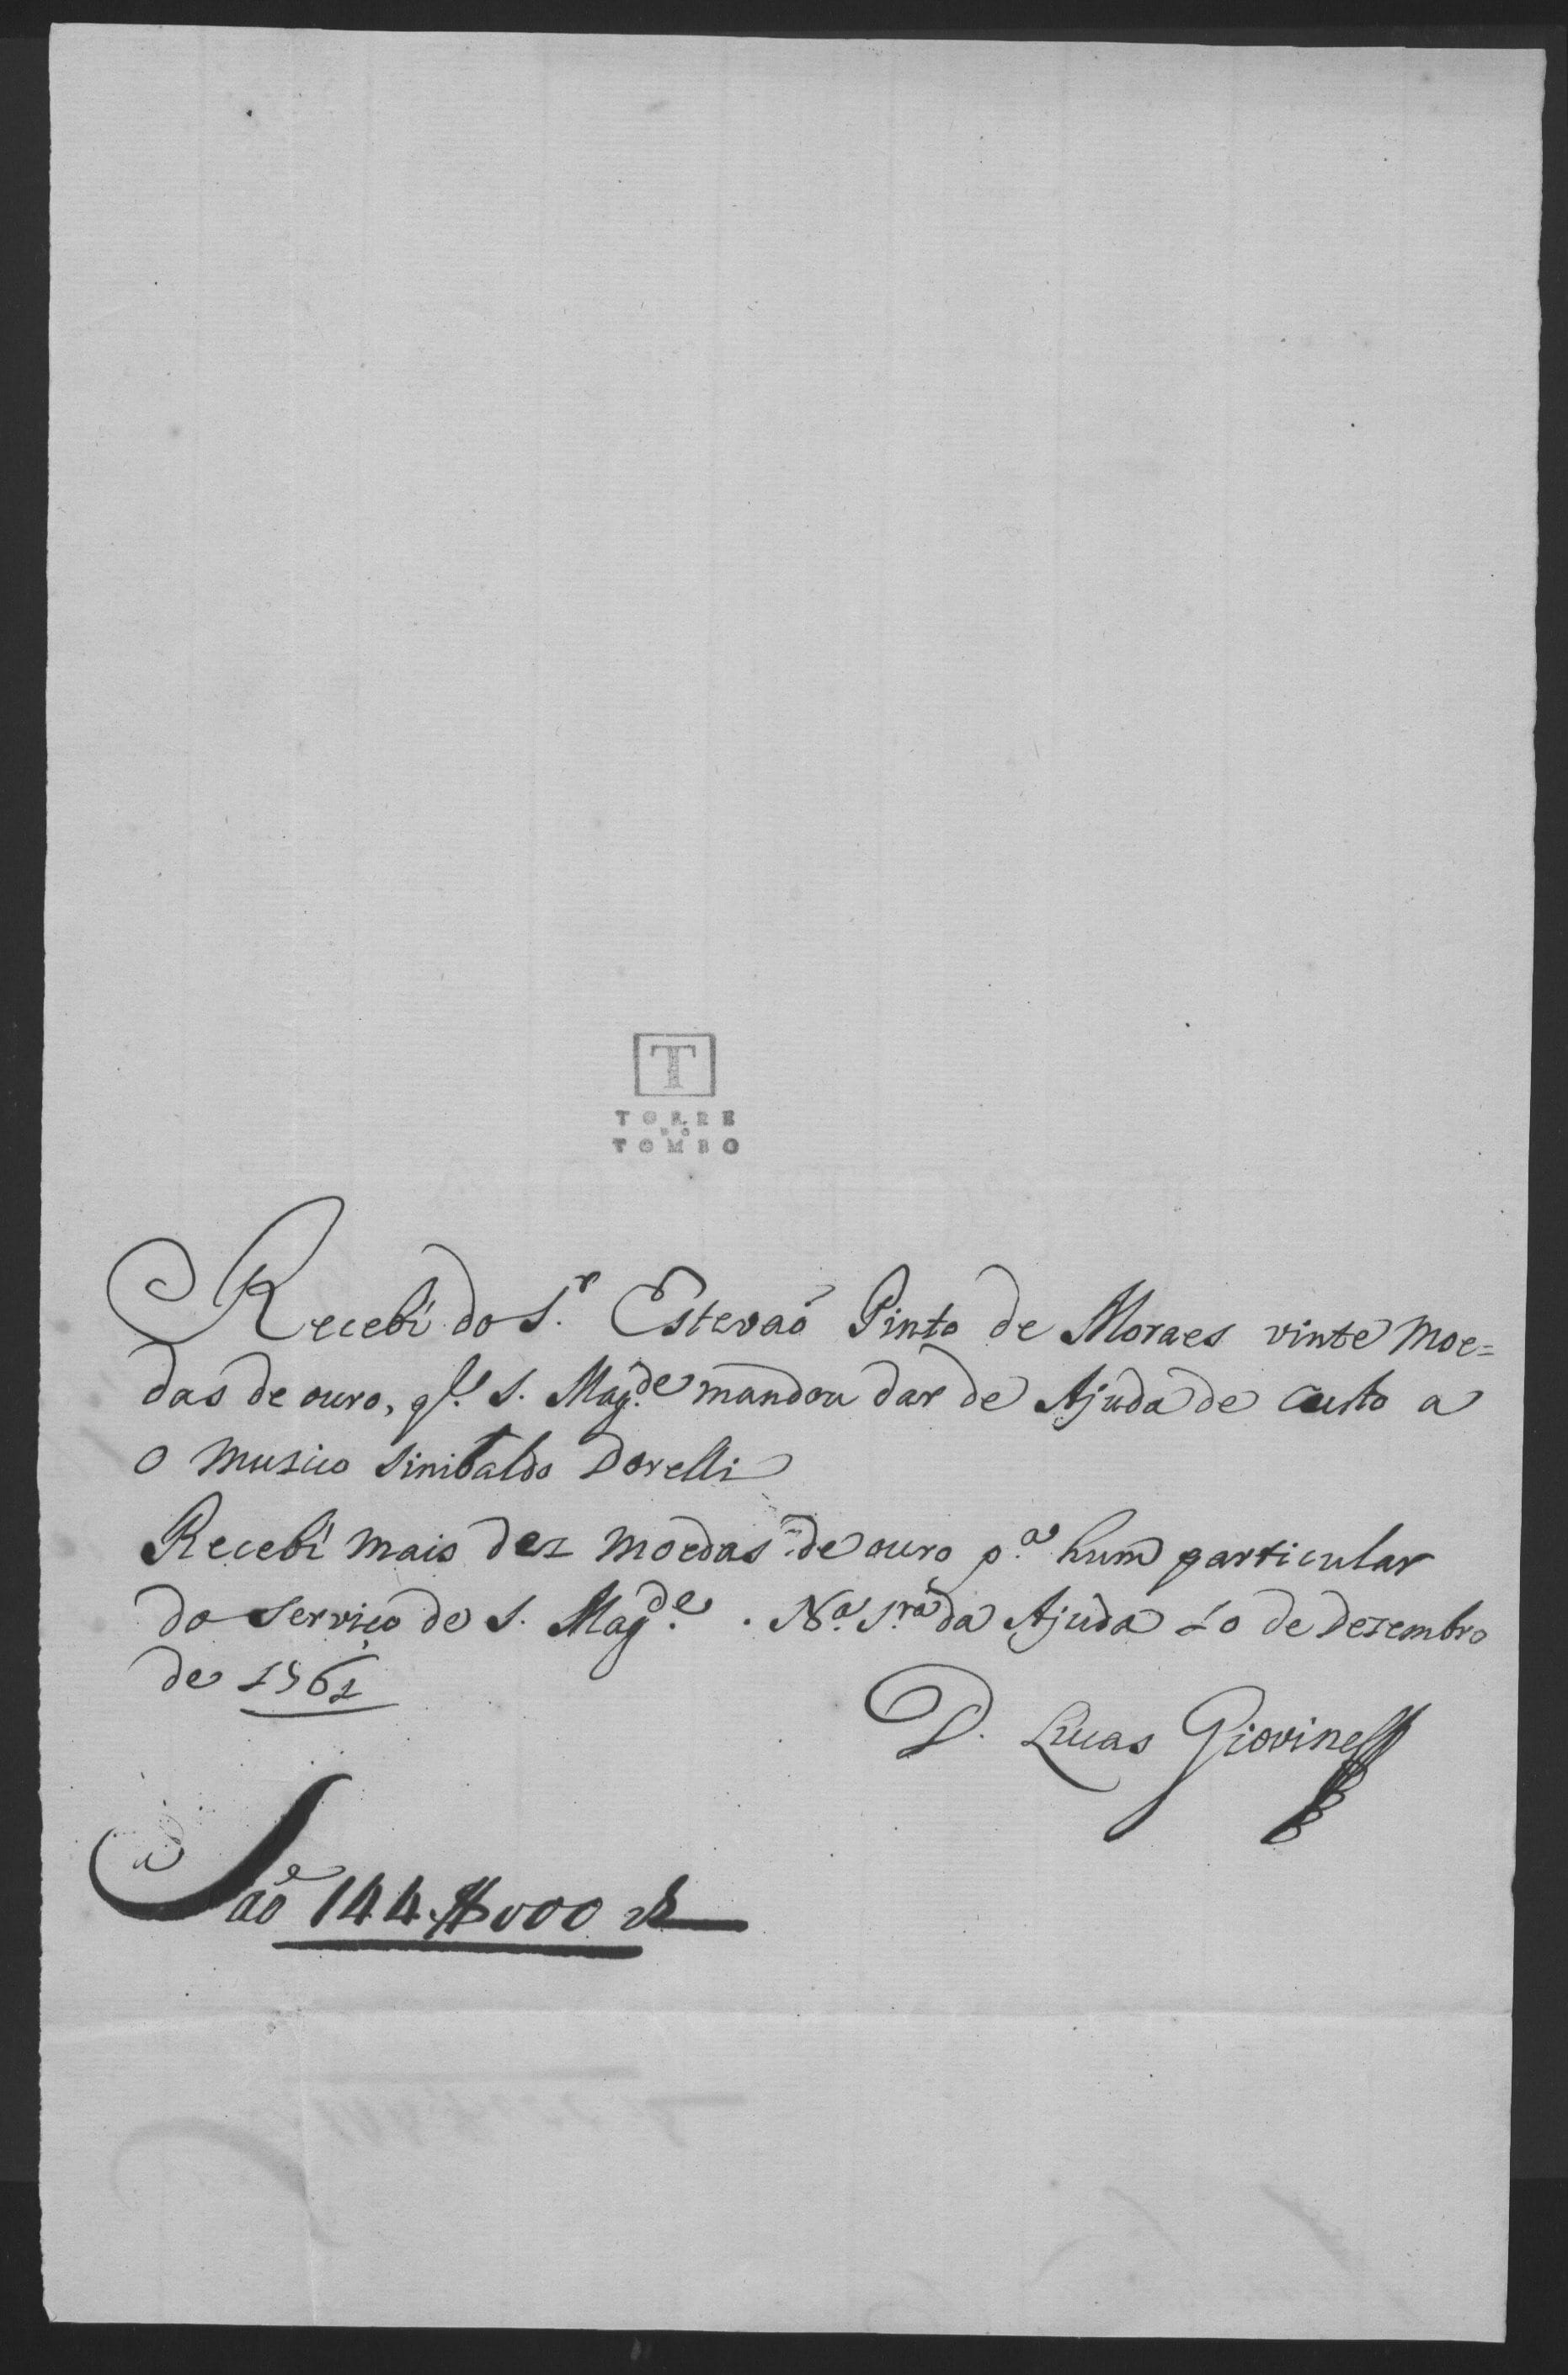 T
TORRE
DO
TOMBO
Recebi do S.r Estevaõ Pinto de Moraes vinte Moe=
das de ouro, q.e S. Mag.de mandou dar de Ajuda de Custo a
o Musico Sinibaldo Dorelli
Recebi mais dez moedas de ouro p.a hum particular
do Serviço de S. Mag.de. N.a S.ra da Ajuda 10 de Dezembro
de 1761
D. Lucas Giovine
Saõ 144$000 rs